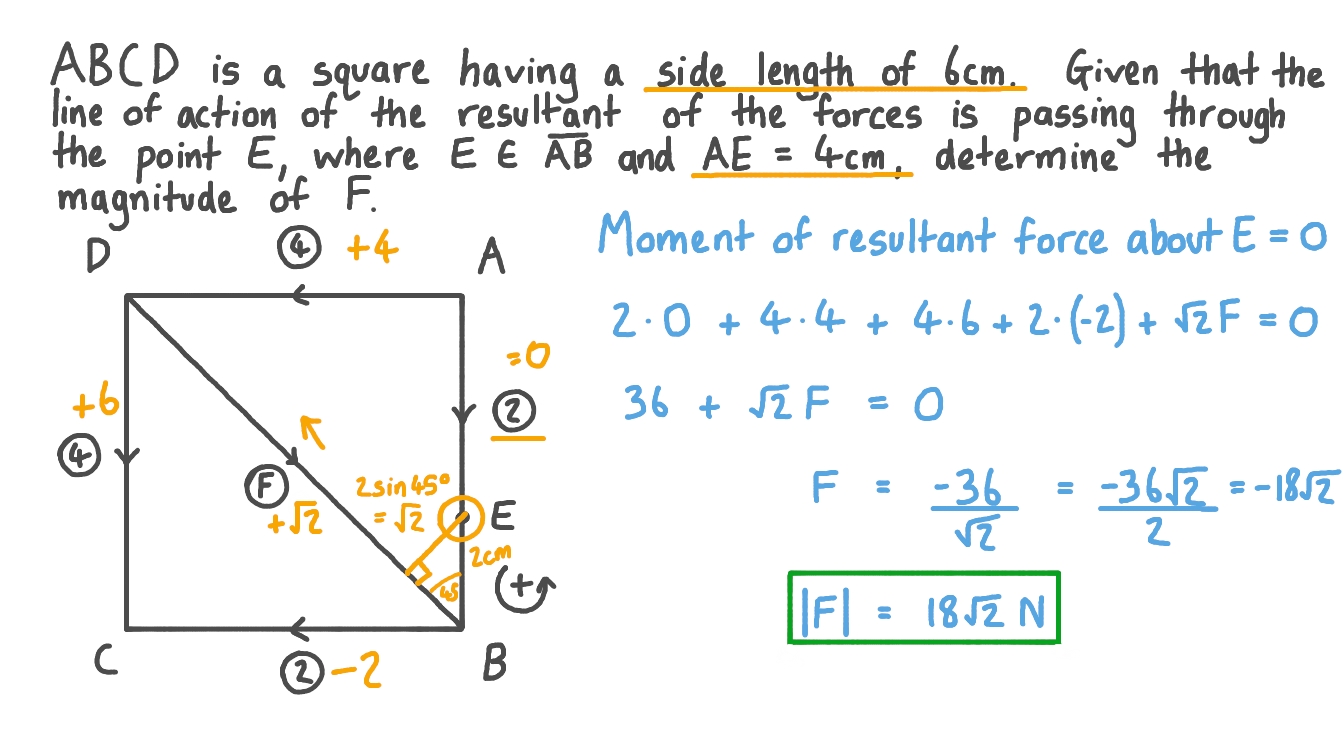 ABCD is a square having a side length of 6cm. Given that the
line of action of the resultant of the forces is passing through
the point E, where E ∈ A̅B̅ and AE = 4cm, determine the
magnitude of F.
D
④ +4
A
Moment of resultant force about E = 0
2·0 + 4·4 + 4·6 + 2·(-2) + √2F = 0
=0
②
+6
④
36 + √2F = 0
F
+√2
2sin45°
= √2
E
2cm
45
+
F = -36/√2 = -36√2/2 = -18√2
|F| = 18√2 N
C
② -2
B